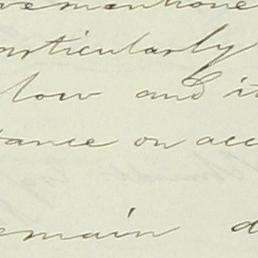 vementione
articularly
low and it
tance on acc
emain d